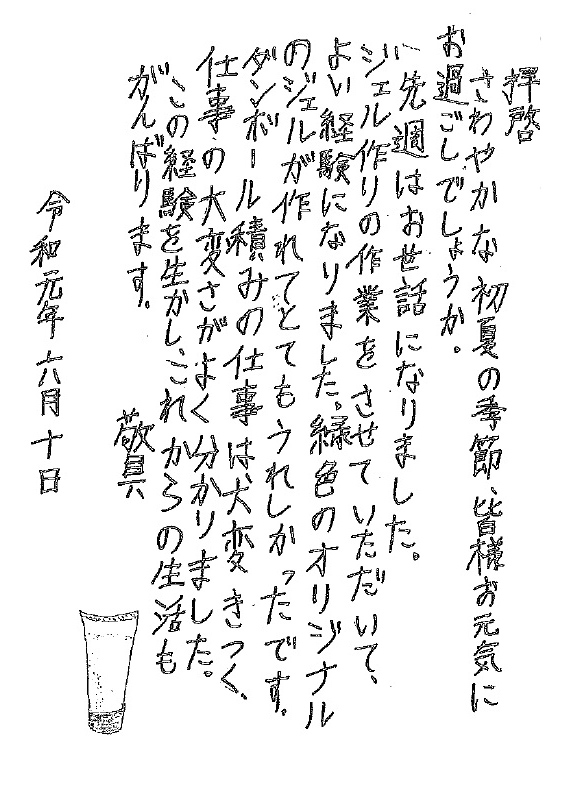 拝啓
さわやかな初夏の季節、皆様お元気に
お過ごしでしょうか。
先週はお世話になりました。
ジェル作りの作業をさせていただいて、
よい経験になりました。緑色のオリジナル
のジェルが作れてとてもうれしかったです。
ダンボール積みの仕事は大変きつく、
仕事の大変さがよく分かりました。
この経験を生かし、これからの生活も
がんばります。
敬具
令和元年六月十日